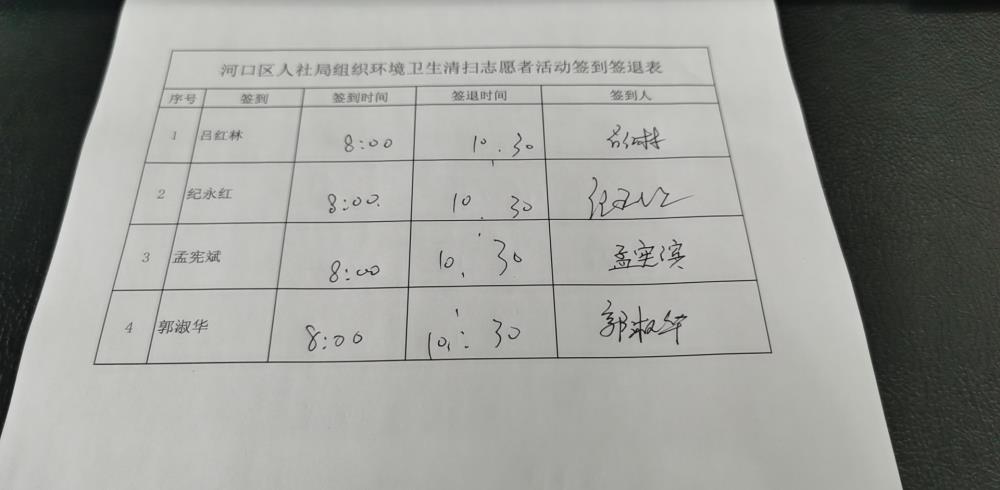 河口区人社局组织环境卫生清扫志愿者活动签到签退表
序号 签到 签到时间 签退时间 签到人
1 吕红林 8:00 10:30 吕红林
2 纪永红 8:00 10:30
3 孟宪斌 8:00 10:30 孟宪滨
4 郭淑华 8:00 10:30 郭淑华